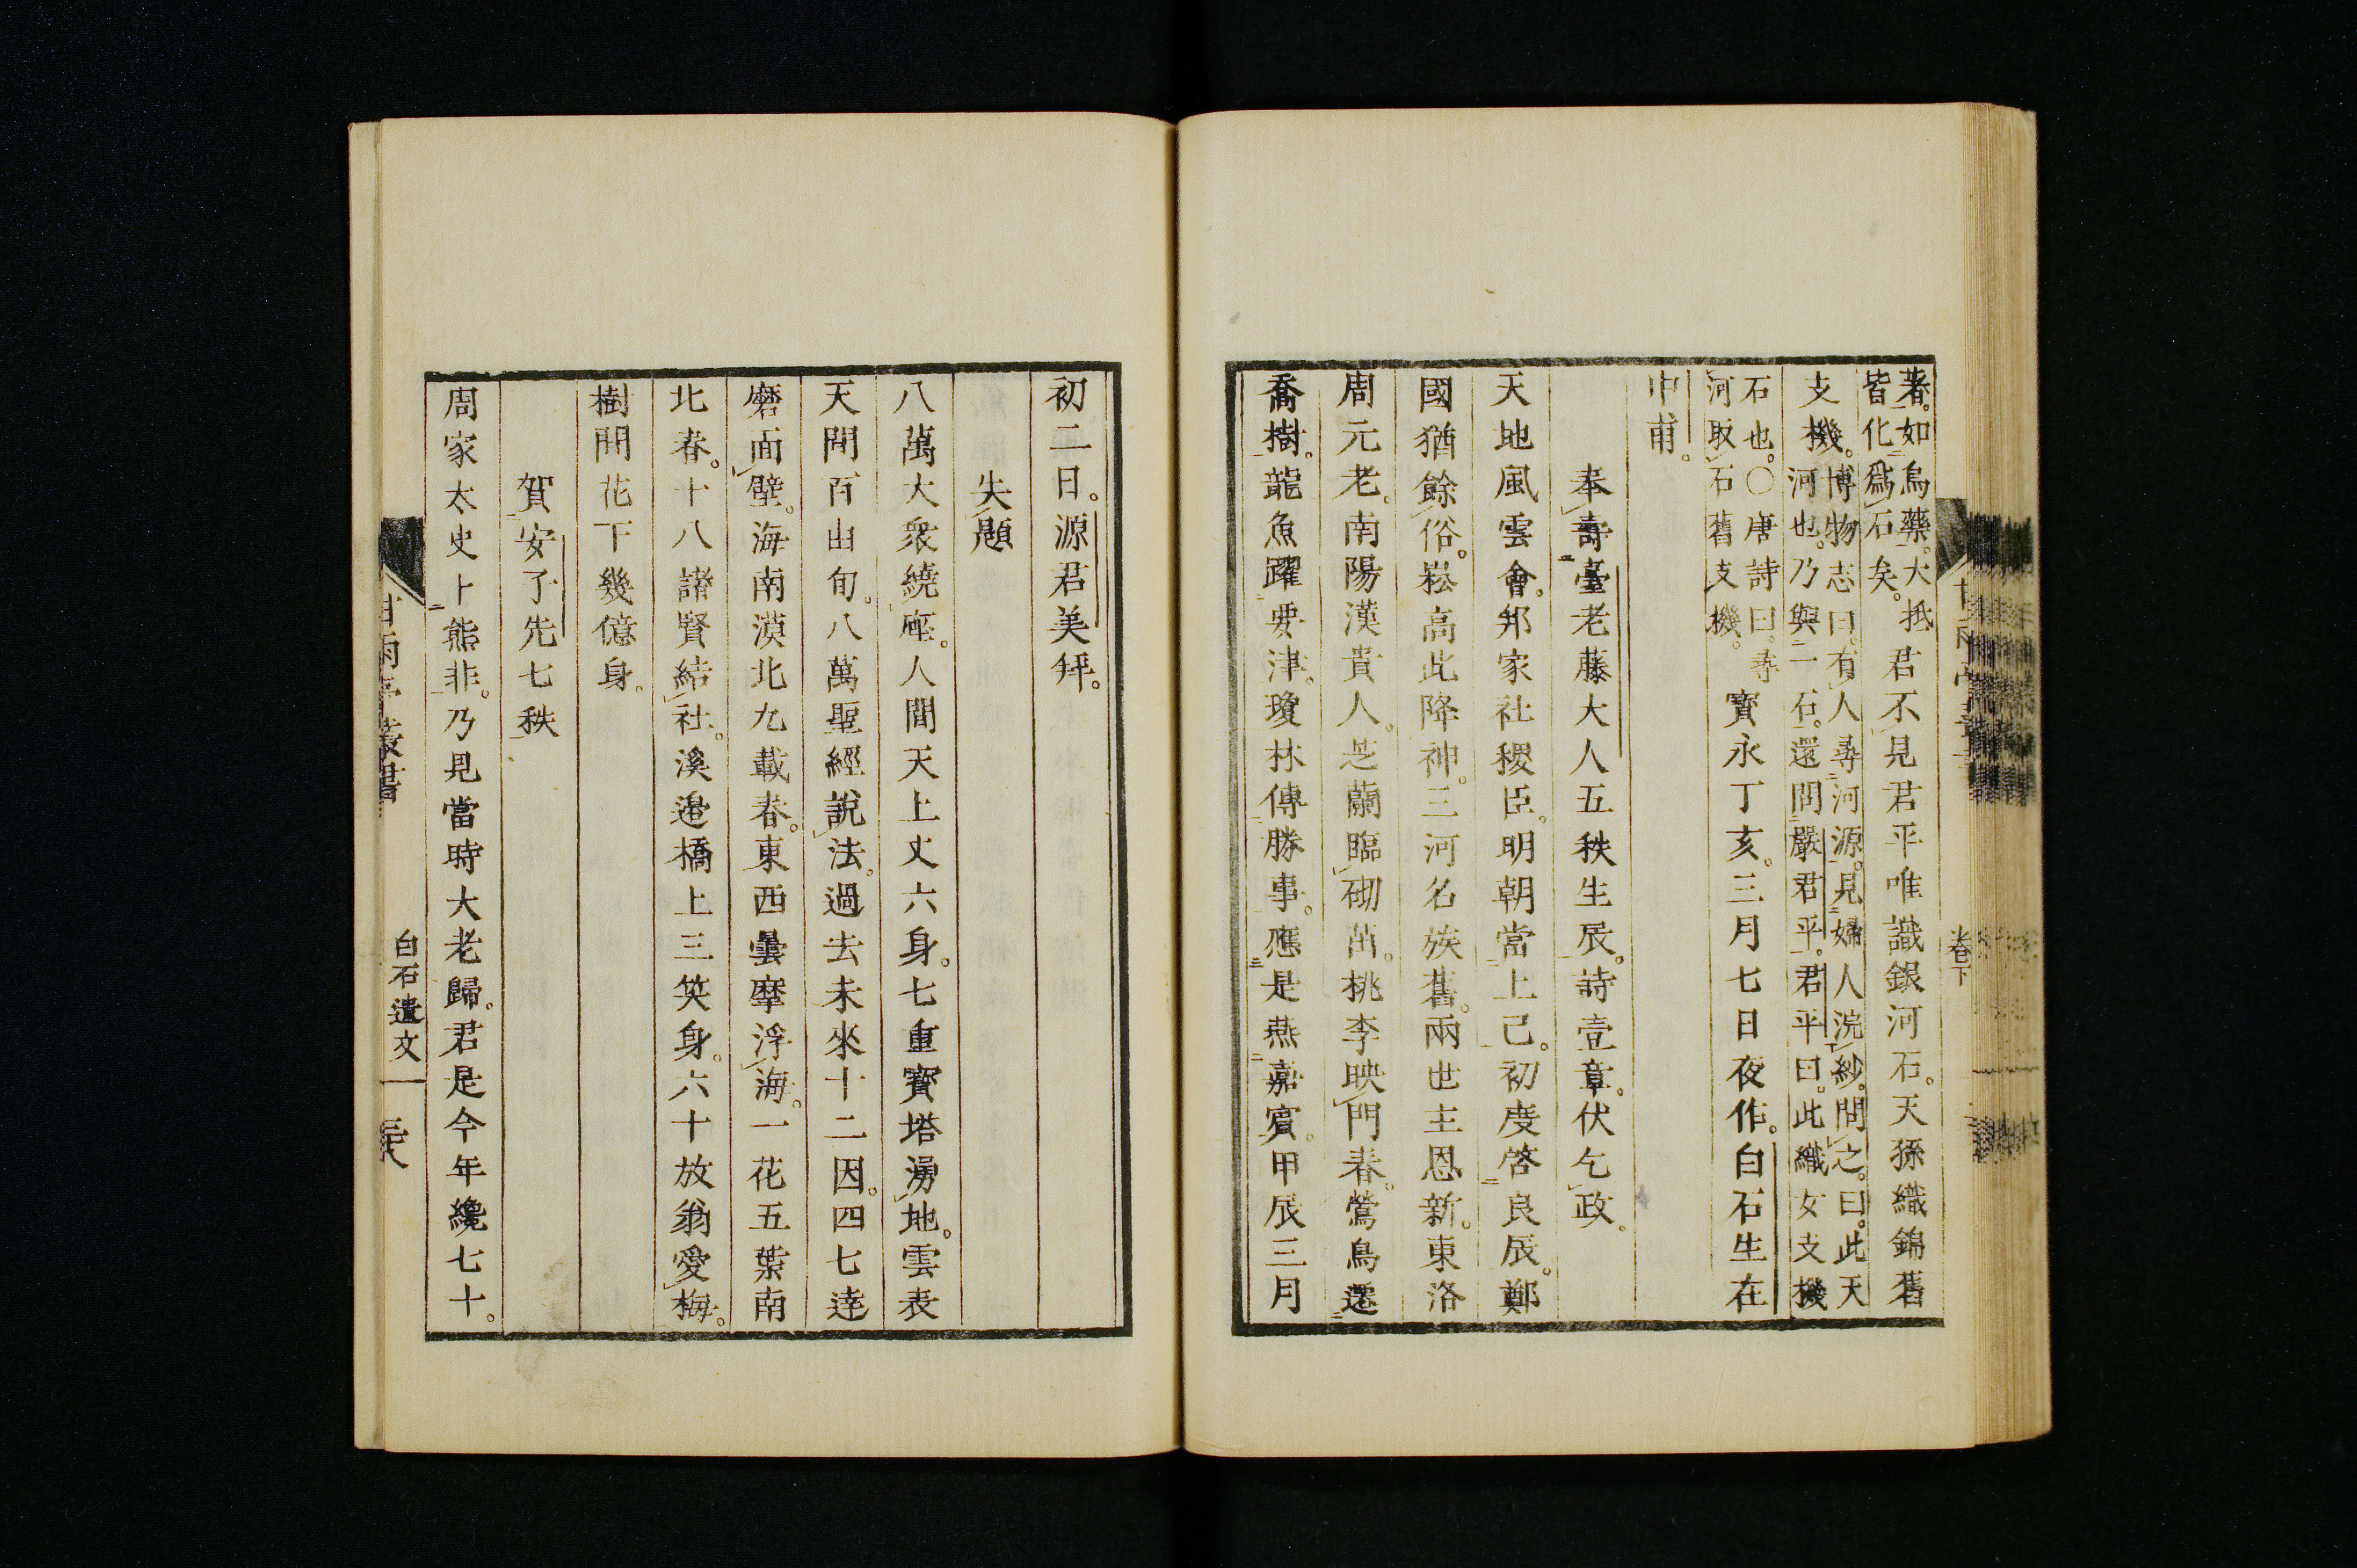 著。如烏藥。大抵
皆化爲石矣。
君不見君平唯識銀河石。天孫織錦舊
支機。
博物志曰。有人尋河源。見婦人浣紗。問之。曰。此天
河也。乃與一石。還問嚴君平。君平曰。此織女支機
石也。〇唐詩曰。尋
河取石舊支機。
寶永丁亥。三月七日夜作。白石生在
中甫。
奉壽臺老藤大人五秩生辰。詩壹章。伏乞政。
天地風雲會。邦家社稷臣。明朝當上己。初度啓良辰。鄭
國猶餘俗。崧高此降神。三河名族舊。兩世主恩新。東洛
周元老。南陽漢貴人。芝蘭臨砌茁。桃李映門春。鶯鳥遷
喬樹。龍魚躍要津。瓊林傳勝事。應是燕嘉賓。甲辰三月
卷下
初二日。源君美拜。
失題
八萬大衆繞座。人間天上丈六身。七重寶塔湧地。雲表
天開百由旬。八萬聖經說法。過去未來十二因。四七達
磨面壁。海南漠北九載春。東西曇摩浮海。一花五葉南
北春。十八諸賢結社。溪邊橋上三笑身。六十放翁愛梅。
樹開花下幾億身。
賀安了先七秩
周家太史卜熊非。乃見當時大老歸。君是今年纔七十。
甘雨亭叢書
白石遺文